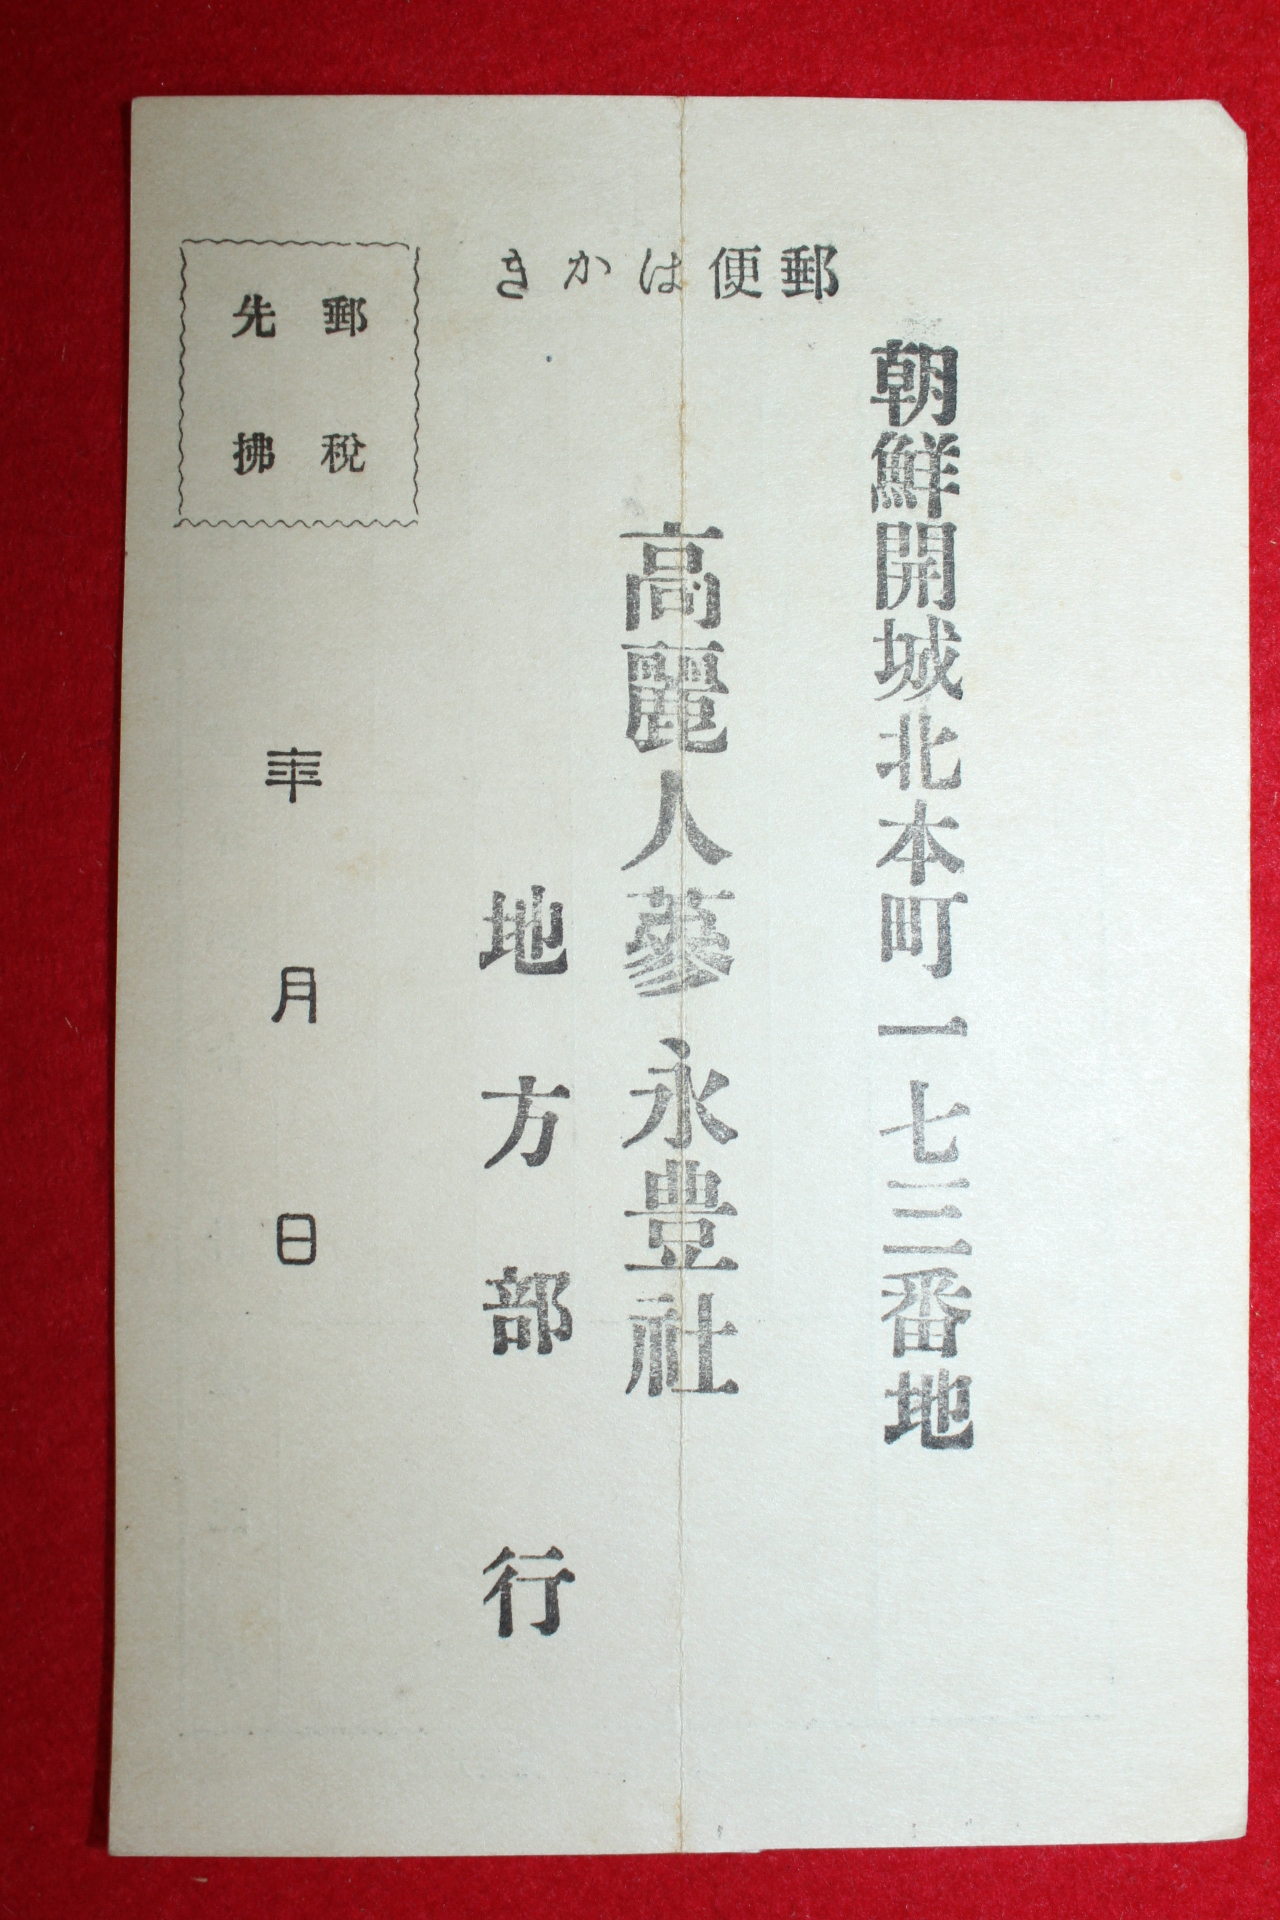 郵便はかき
朝鮮開城北本町一七三番地
高麗人蔘永豊社
地方部行
郵税
先拂
年月日